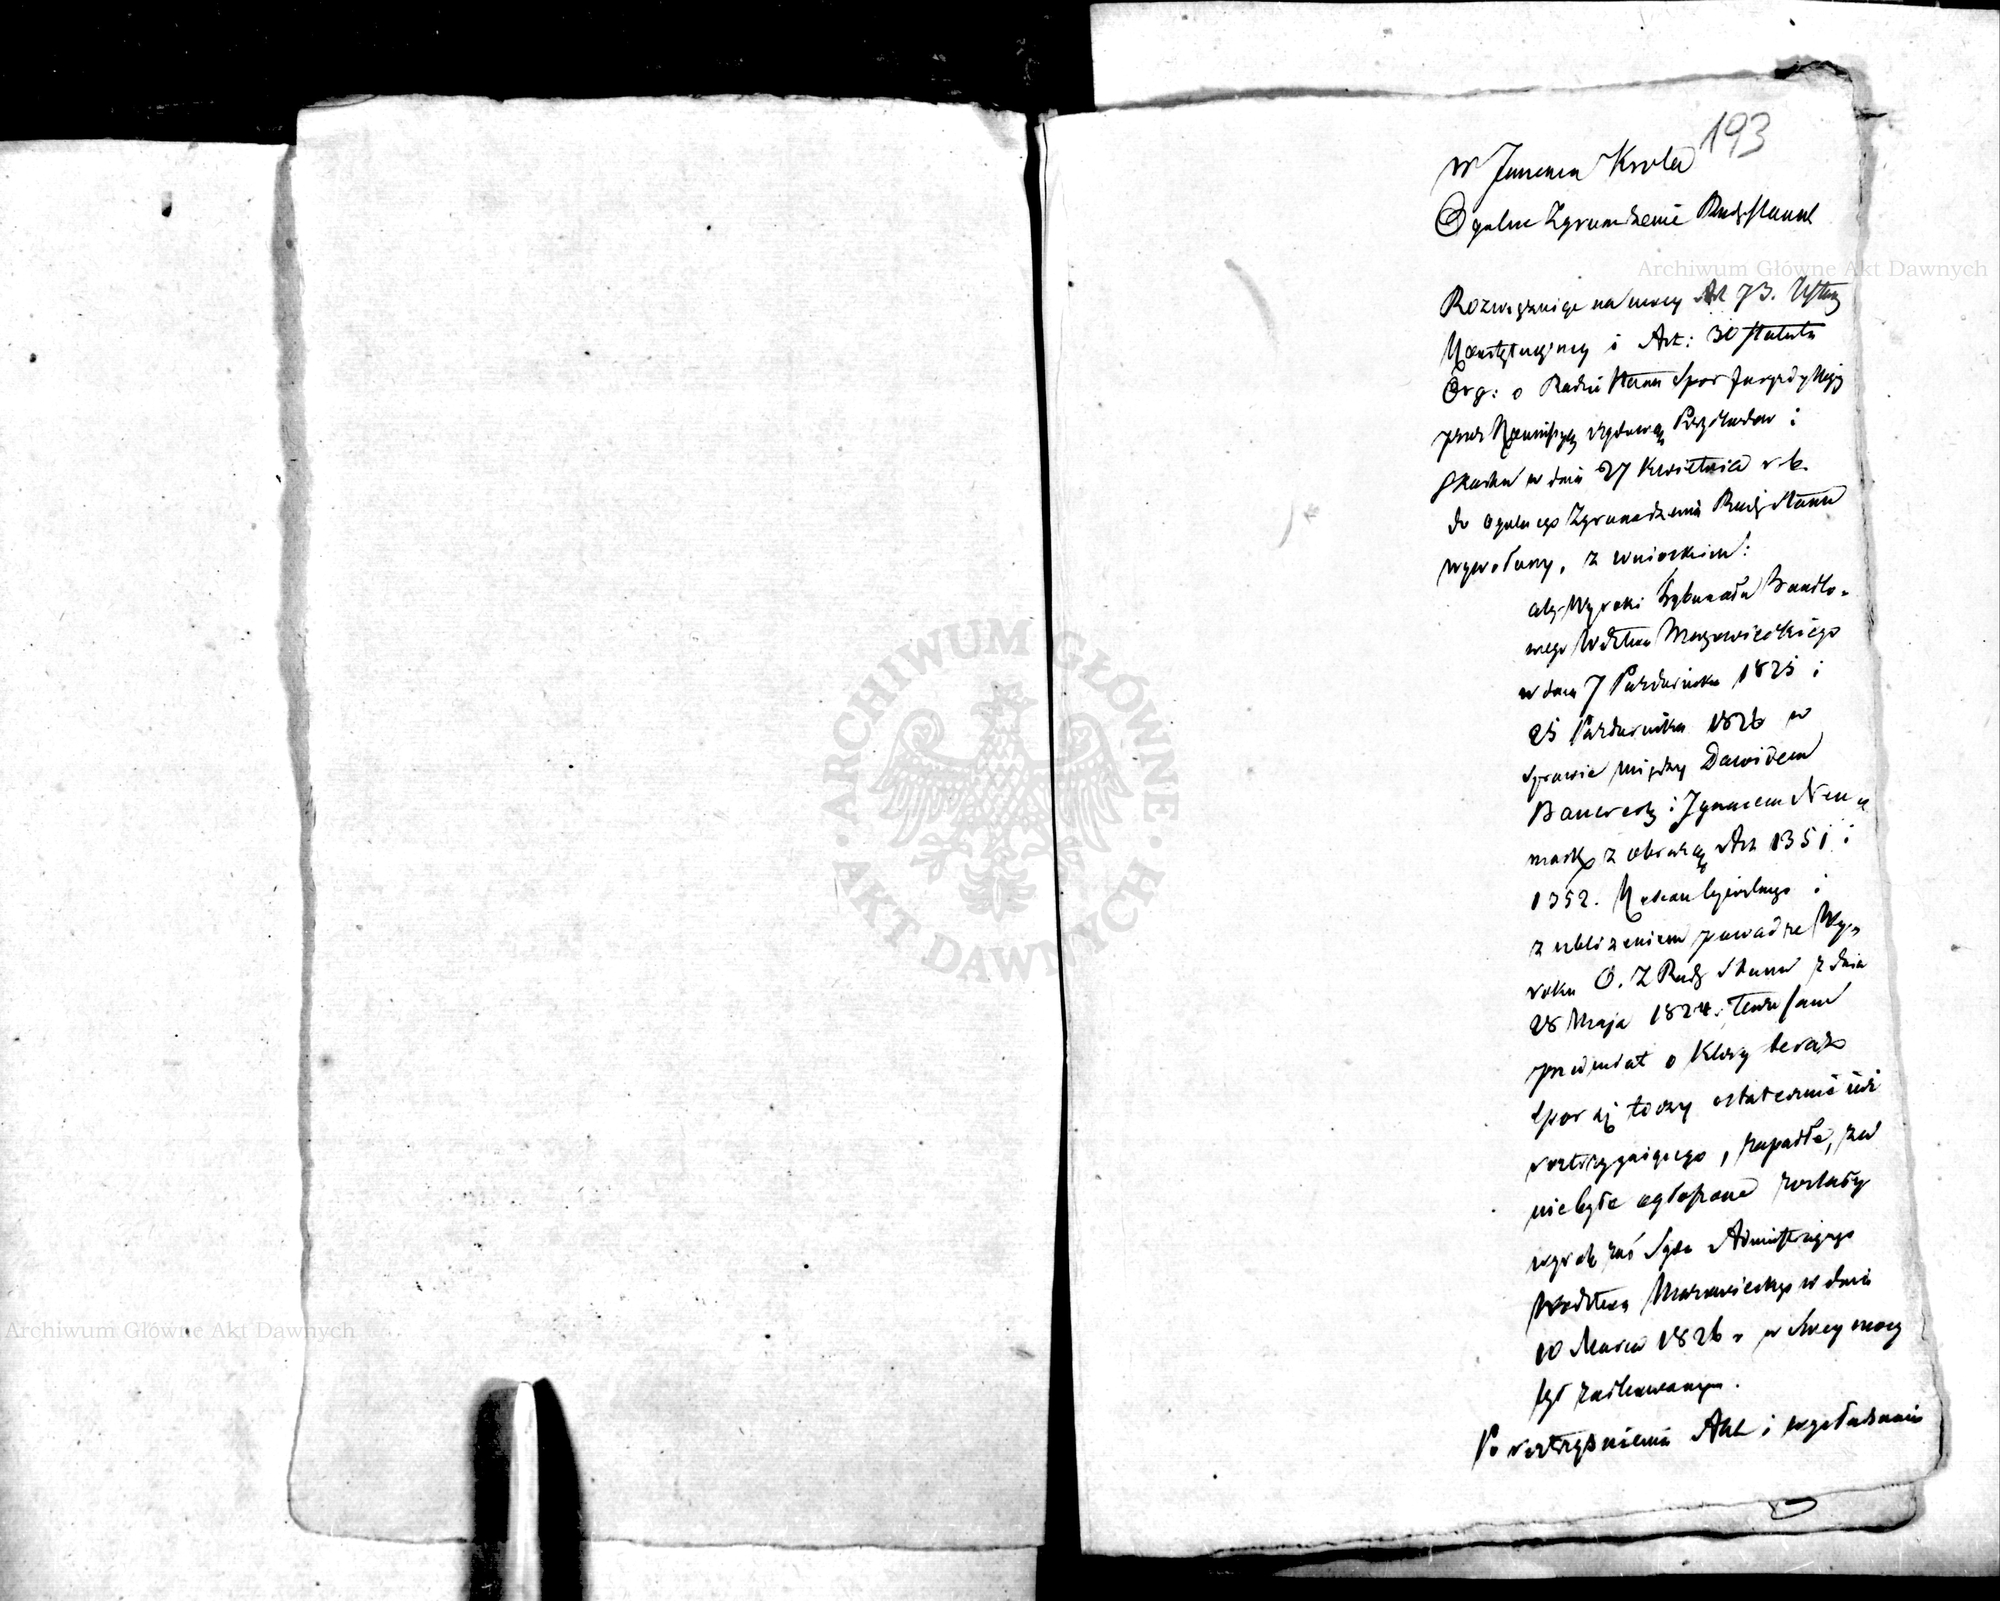 193
w Imieniu Króla
Ogólne Zgromadzenie Rady Stanu
Archiwum Główne Akt Dawnych
Rozwiązując na mocy Art 73. Ustawy
Konstytucyjney i Art: 30 Statutu
Org: o Radzie Stanu Spor Jurysdykcyjny
przez Kommissyą Rządową Przychodow i
Skarbu w dniu 27 Kwietnia r b.
do Ogólnego Zgromadzenia Rady Stanu
wywołany, z wnioskiem:
aby Wyroki Trybunału Handlo-
wego Wdztwa Mazowieckiego
w dniu 7 Października 1825 i
25 Października 1826 w
Sprawie między Dawidem
i Ignacem Neu-
mark z obrazą Art 1351 i
1352. Kodexu Cywilnego i
z ubliżeniem powadze Wy-
roku O. Z Rady Stanu z dnia
28 Maja 1824. Tenże sam
przedmiot o który teraz
Spor się toczy ostatecznie już
rozstrzygającego, zapadłe, za
niebyłe ogłoszone zostały
wyrok zaś Sądu Administracyinego
Wdztwa Mazowieckiego w dniu
10 Marca 1826 r w Swey mocy
był zachowanym.
Po roztrząśnieniu Akt i wysłuchaniu
ARCHIWUM GŁÓWNE
AKT DAWNYCH
Archiwum Główne Akt Dawnych